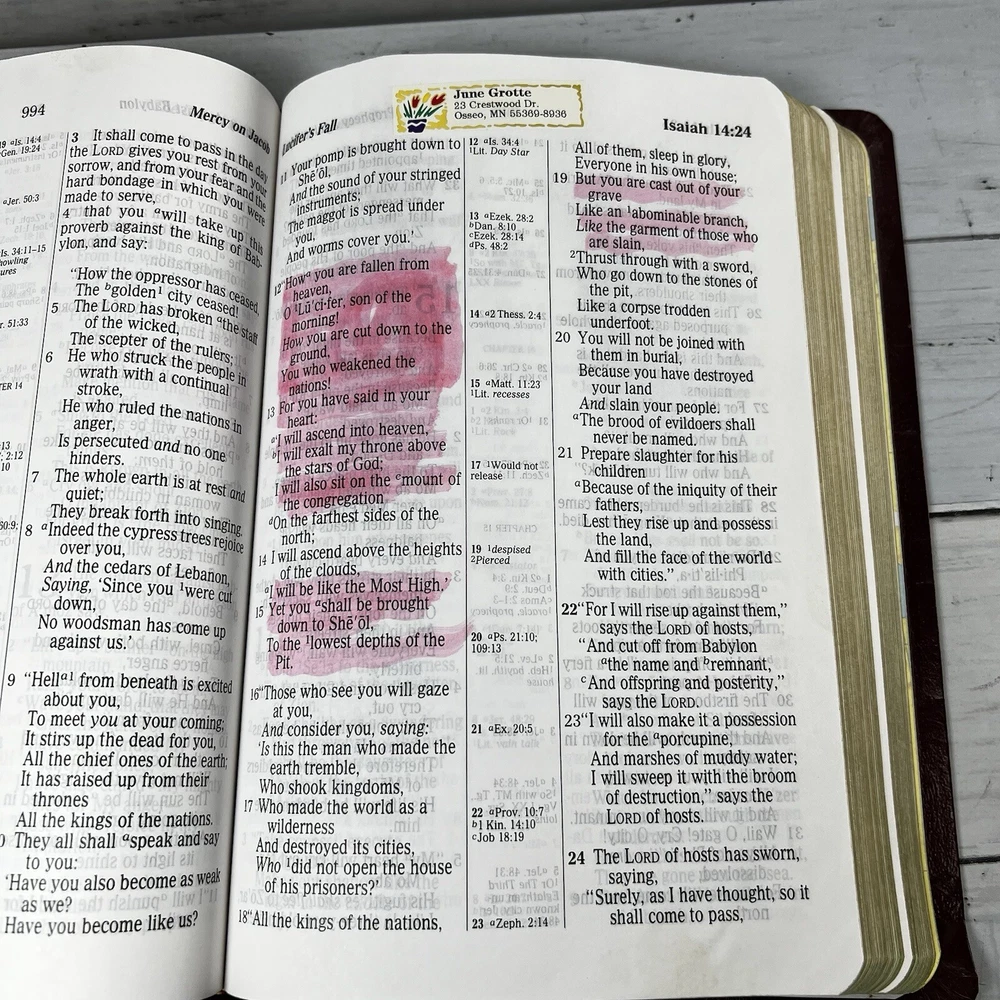 994
Mercy on Jacob
19 ᵃIs. 14:4
Gen. 19:24
ᵃJer. 50:3
Is. 34:11–15
howling
ures
r. 51:33
TER 14
:13
; 2:12
10
60:9;
3 It shall come to pass in the day
the LORD gives you rest from your
sorrow, and from your fear and the
hard bondage in which you were
made to serve,
4 that you ᵃwill take up this
proverb against the king of Bab-
ylon, and say:
“How the oppressor has ceased,
The ᵇgolden¹ city ceased!
5 The LORD has broken ᵃthe staff
of the wicked,
The scepter of the rulers;
6 He who struck the people in
wrath with a continual
stroke,
He who ruled the nations in
anger,
Is persecuted and no one
hinders.
7 The whole earth is at rest and
quiet;
They break forth into singing.
8 ᵃIndeed the cypress trees rejoice
over you,
And the cedars of Lebanon,
Saying, ‘Since you ¹were cut
down,
No woodsman has come up
against us.’
9 “Hellᵃ¹ from beneath is excited
about you,
To meet you at your coming;
It stirs up the dead for you,
All the chief ones of the earth;
It has raised up from their
thrones
All the kings of the nations.
0 They all shall ᵃspeak and say
to you:
‘Have you also become as weak
as we?
Have you become like us?
June Grotte
23 Crestwood Dr.
Osseo, MN 55369-8936
Lucifer's Fall
Isaiah 14:24
11 Your pomp is brought down to
Shē´ōl,
And the sound of your stringed
instruments;
The maggot is spread under
you,
And worms cover you.’
12 “Howᵃ you are fallen from
heaven,
O ¹Lū´ci·fer, son of the
morning!
How you are cut down to the
ground,
You who weakened the
nations!
13 For you have said in your
heart:
ᵃ‘I will ascend into heaven,
ᵇI will exalt my throne above
the stars of God;
I will also sit on the ᶜmount of
the congregation
ᵈOn the farthest sides of the
north;
14 I will ascend above the heights
of the clouds,
ᵃI will be like the Most High.’
15 Yet you ᵃshall be brought
down to Shē´ōl,
To the ¹lowest depths of the
Pit.
16 “Those who see you will gaze
at you,
And consider you, saying:
‘Is this the man who made the
earth tremble,
Who shook kingdoms,
17 Who made the world as a
wilderness
And destroyed its cities,
Who ¹did not open the house
of his prisoners?’
18 “All the kings of the nations,
12 ᵃIs. 34:4
¹Lit. Day Star
13 ᵃEzek. 28:2
ᵇDan. 8:10
ᶜEzek. 28:14
ᵈPs. 48:2
14 ᵃ2 Thess. 2:4
15 ᵃMatt. 11:23
¹Lit. recesses
17 ¹Would not
release
19 ¹despised
²Pierced
20 ᵃPs. 21:10;
109:13
21 ᵃEx. 20:5
22 ᵃProv. 10:7
ᵇ1 Kin. 14:10
ᶜJob 18:19
23 ᵃZeph. 2:14
All of them, sleep in glory,
Everyone in his own house;
19 But you are cast out of your
grave
Like an ¹abominable branch,
Like the garment of those who
are slain,
²Thrust through with a sword,
Who go down to the stones of
the pit,
Like a corpse trodden
underfoot.
20 You will not be joined with
them in burial,
Because you have destroyed
your land
And slain your people.
ᵃThe brood of evildoers shall
never be named.
21 Prepare slaughter for his
children
ᵃBecause of the iniquity of their
fathers,
Lest they rise up and possess
the land,
And fill the face of the world
with cities.”
22 “For I will rise up against them,”
says the LORD of hosts,
“And cut off from Babylon
ᵃthe name and ᵇremnant,
ᶜAnd offspring and posterity,”
says the LORD.
23 “I will also make it a possession
for the ᵃporcupine,
And marshes of muddy water;
I will sweep it with the broom
of destruction,” says the
LORD of hosts.
24 The LORD of hosts has sworn,
saying,
“Surely, as I have thought, so it
shall come to pass,